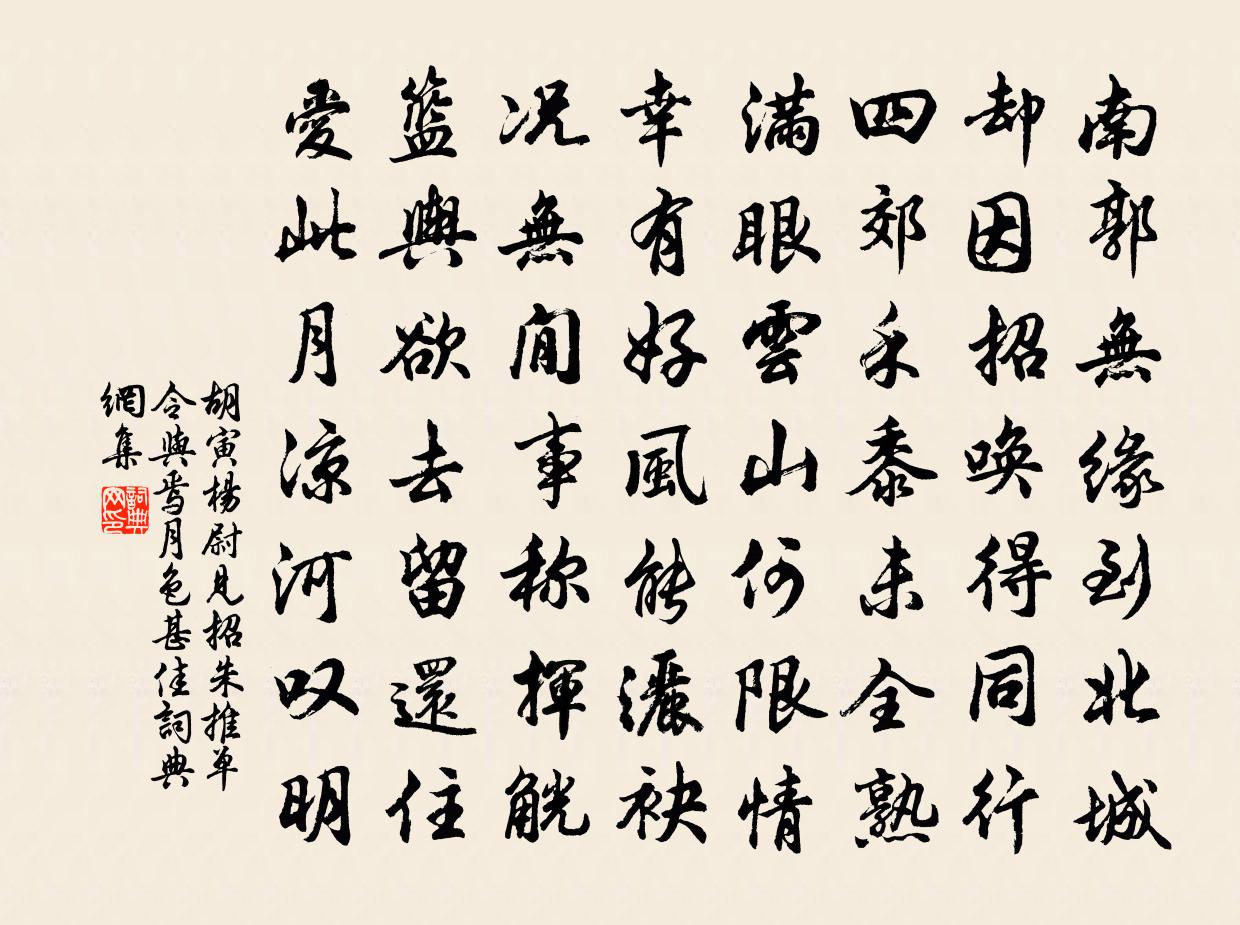 南郭無緣到北城
却因招唤得同行
四郊禾黍未全熟
滿眼雲山何限情
幸有好風能灑袂
况無閒事称揮觥
籃輿欲去留還住
愛此月凉河叹明
胡寅楊尉見招朱推单
令與焉月色甚佳詞典
網集
詞典
网印